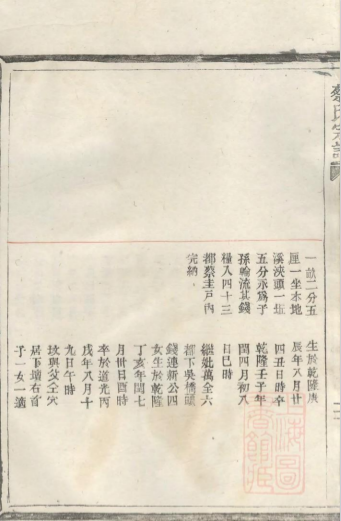 蔡氏宗譜
一畝二分五
厘一坐木地
溪浹頭一坵
五分永為子
孫輪流其錢
糧入四十三
都蔡圭戶內
完納
生於乾隆庚
辰年八月廿
四丑日時卒
乾隆壬子年
閏四月初八
日巳時
繼妣萬全六
都下吳橋頭
錢連新公四
女生於乾隆
丁亥年閏七
月卅日酉時
卒於道光丙
戌年八月十
九日午時
坟與父仝穴
居下壙右首
子一女一適